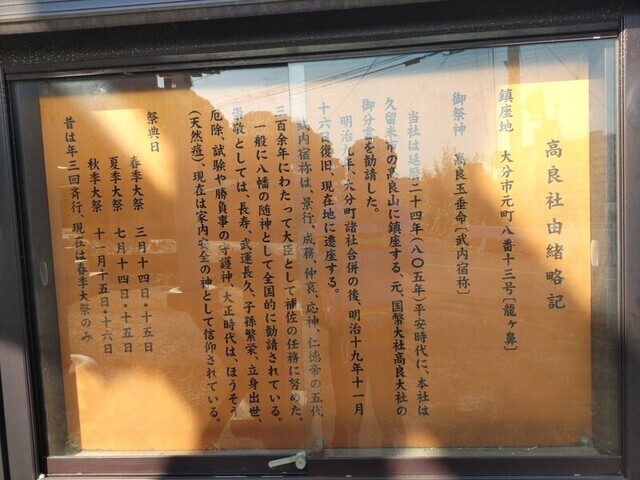 高良社由緒略記
鎮座地　大分市元町八番十三号〔龍ヶ鼻〕
御祭神　高良玉垂命〔武内宿祢〕
当社は延暦二十四年(八〇五年)平安時代に、本社は
久留米市の高良山に鎮座する、元、国幣大社高良大社の
御分霊を勧請した。
明治九年、六分町諸社合併の後、明治十九年十一月
十六日復旧、現在地に遷座する。
武内宿祢は、景行、成務、仲哀、応神、仁徳帝の五代、
三百余年にわたって大臣として補佐の任務に努めた。
一般に八幡の随神として全国的に勧請されている。
崇敬としては、長寿、武運長久、子孫繁栄、立身出世、
厄除、試験や勝負事の守護神、大正時代は、ほうそう
(天然痘)、現在は家内安全の神として信仰されている。
祭典日
春季大祭　三月十四日・十五日
夏季大祭　七月十四日・十五日
秋季大祭　十一月十五日・十六日
昔は年三回斉行、現在は春季大祭のみ